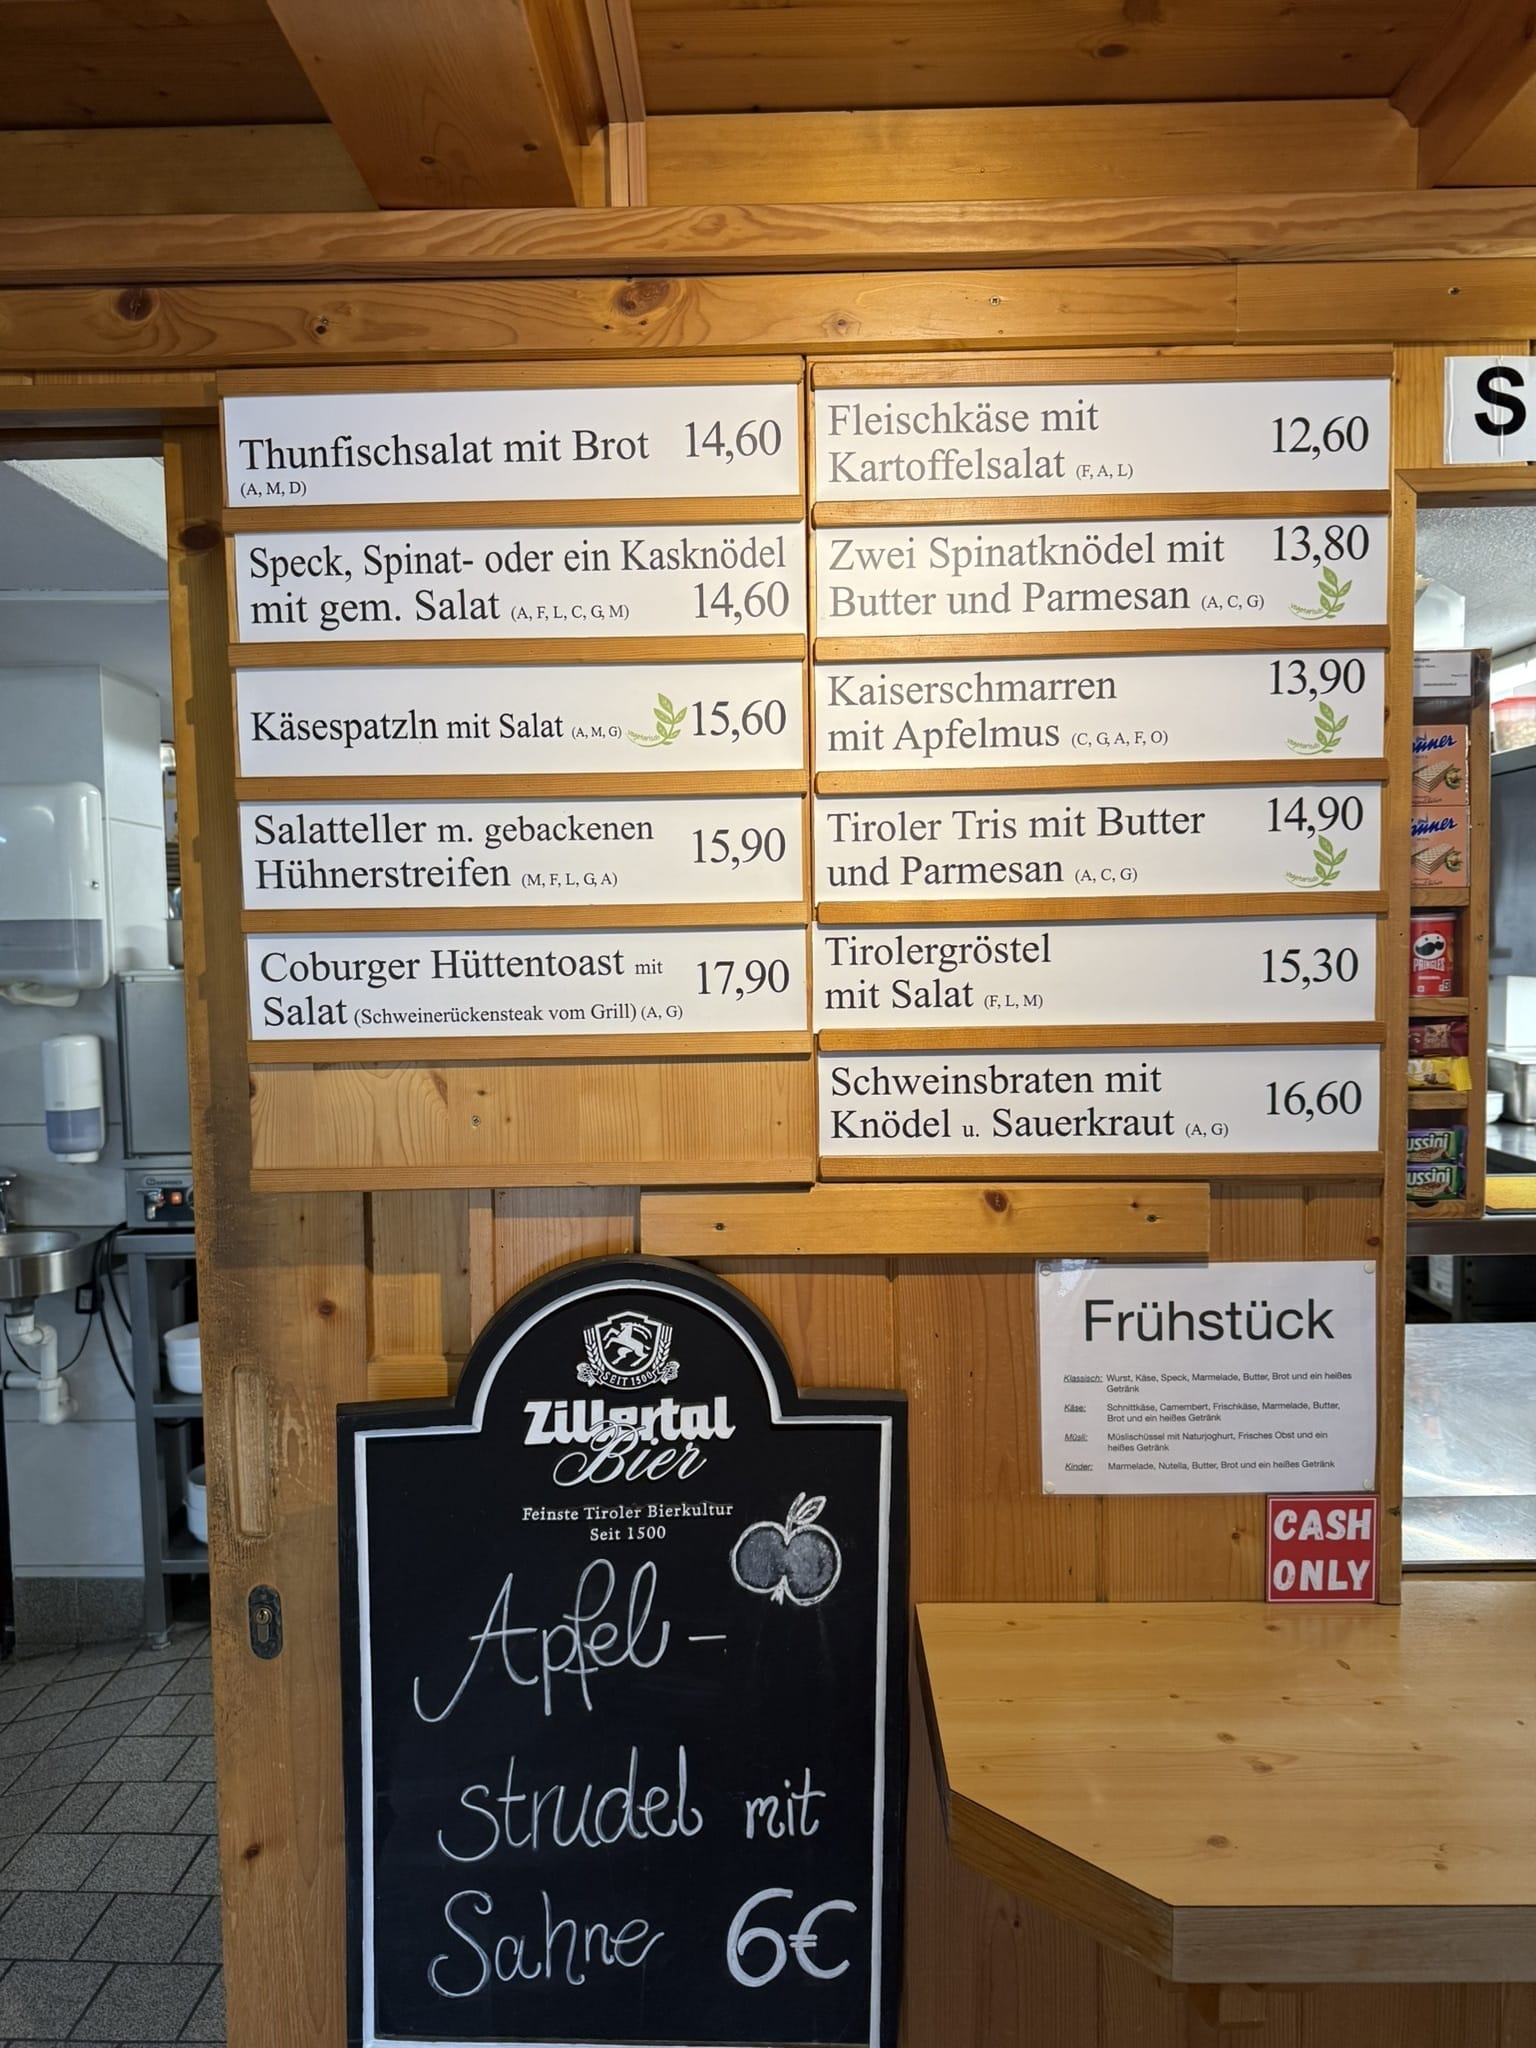 Thunfischsalat mit Brot 14,60
(A, M, D)
Speck, Spinat- oder ein Kasknödel
mit gem. Salat (A, F, L, C, G, M) 14,60
Käsespatzln mit Salat (A, M, G) vegetarisch 15,60
Salatteller m. gebackenen
Hühnerstreifen (M, F, L, G, A) 15,90
Coburger Hüttentoast mit
Salat (Schweinerückensteak vom Grill) (A, G) 17,90
Fleischkäse mit
Kartoffelsalat (F, A, L) 12,60
Zwei Spinatknödel mit 13,80
Butter und Parmesan (A, C, G) vegetarisch
Kaiserschmarren 13,90
mit Apfelmus (C, G, A, F, O) vegetarisch
Tiroler Tris mit Butter 14,90
und Parmesan (A, C, G) vegetarisch
Tirolergröstel
mit Salat (F, L, M) 15,30
Schweinsbraten mit
Knödel u. Sauerkraut (A, G) 16,60
S
PRINGLES
Frühstück
Klassisch: Wurst, Käse, Speck, Marmelade, Butter, Brot und ein heißes
Getränk
Käse: Schnittkäse, Camembert, Frischkäse, Marmelade, Butter,
Brot und ein heißes Getränk
Müsli: Müslischüssel mit Naturjoghurt, Frisches Obst und ein
heißes Getränk
Kinder: Marmelade, Nutella, Butter, Brot und ein heißes Getränk
CASH
ONLY
SEIT 1500
Zillertal
Bier
Feinste Tiroler Bierkultur
Seit 1500
Apfel-
strudel mit
Sahne 6€